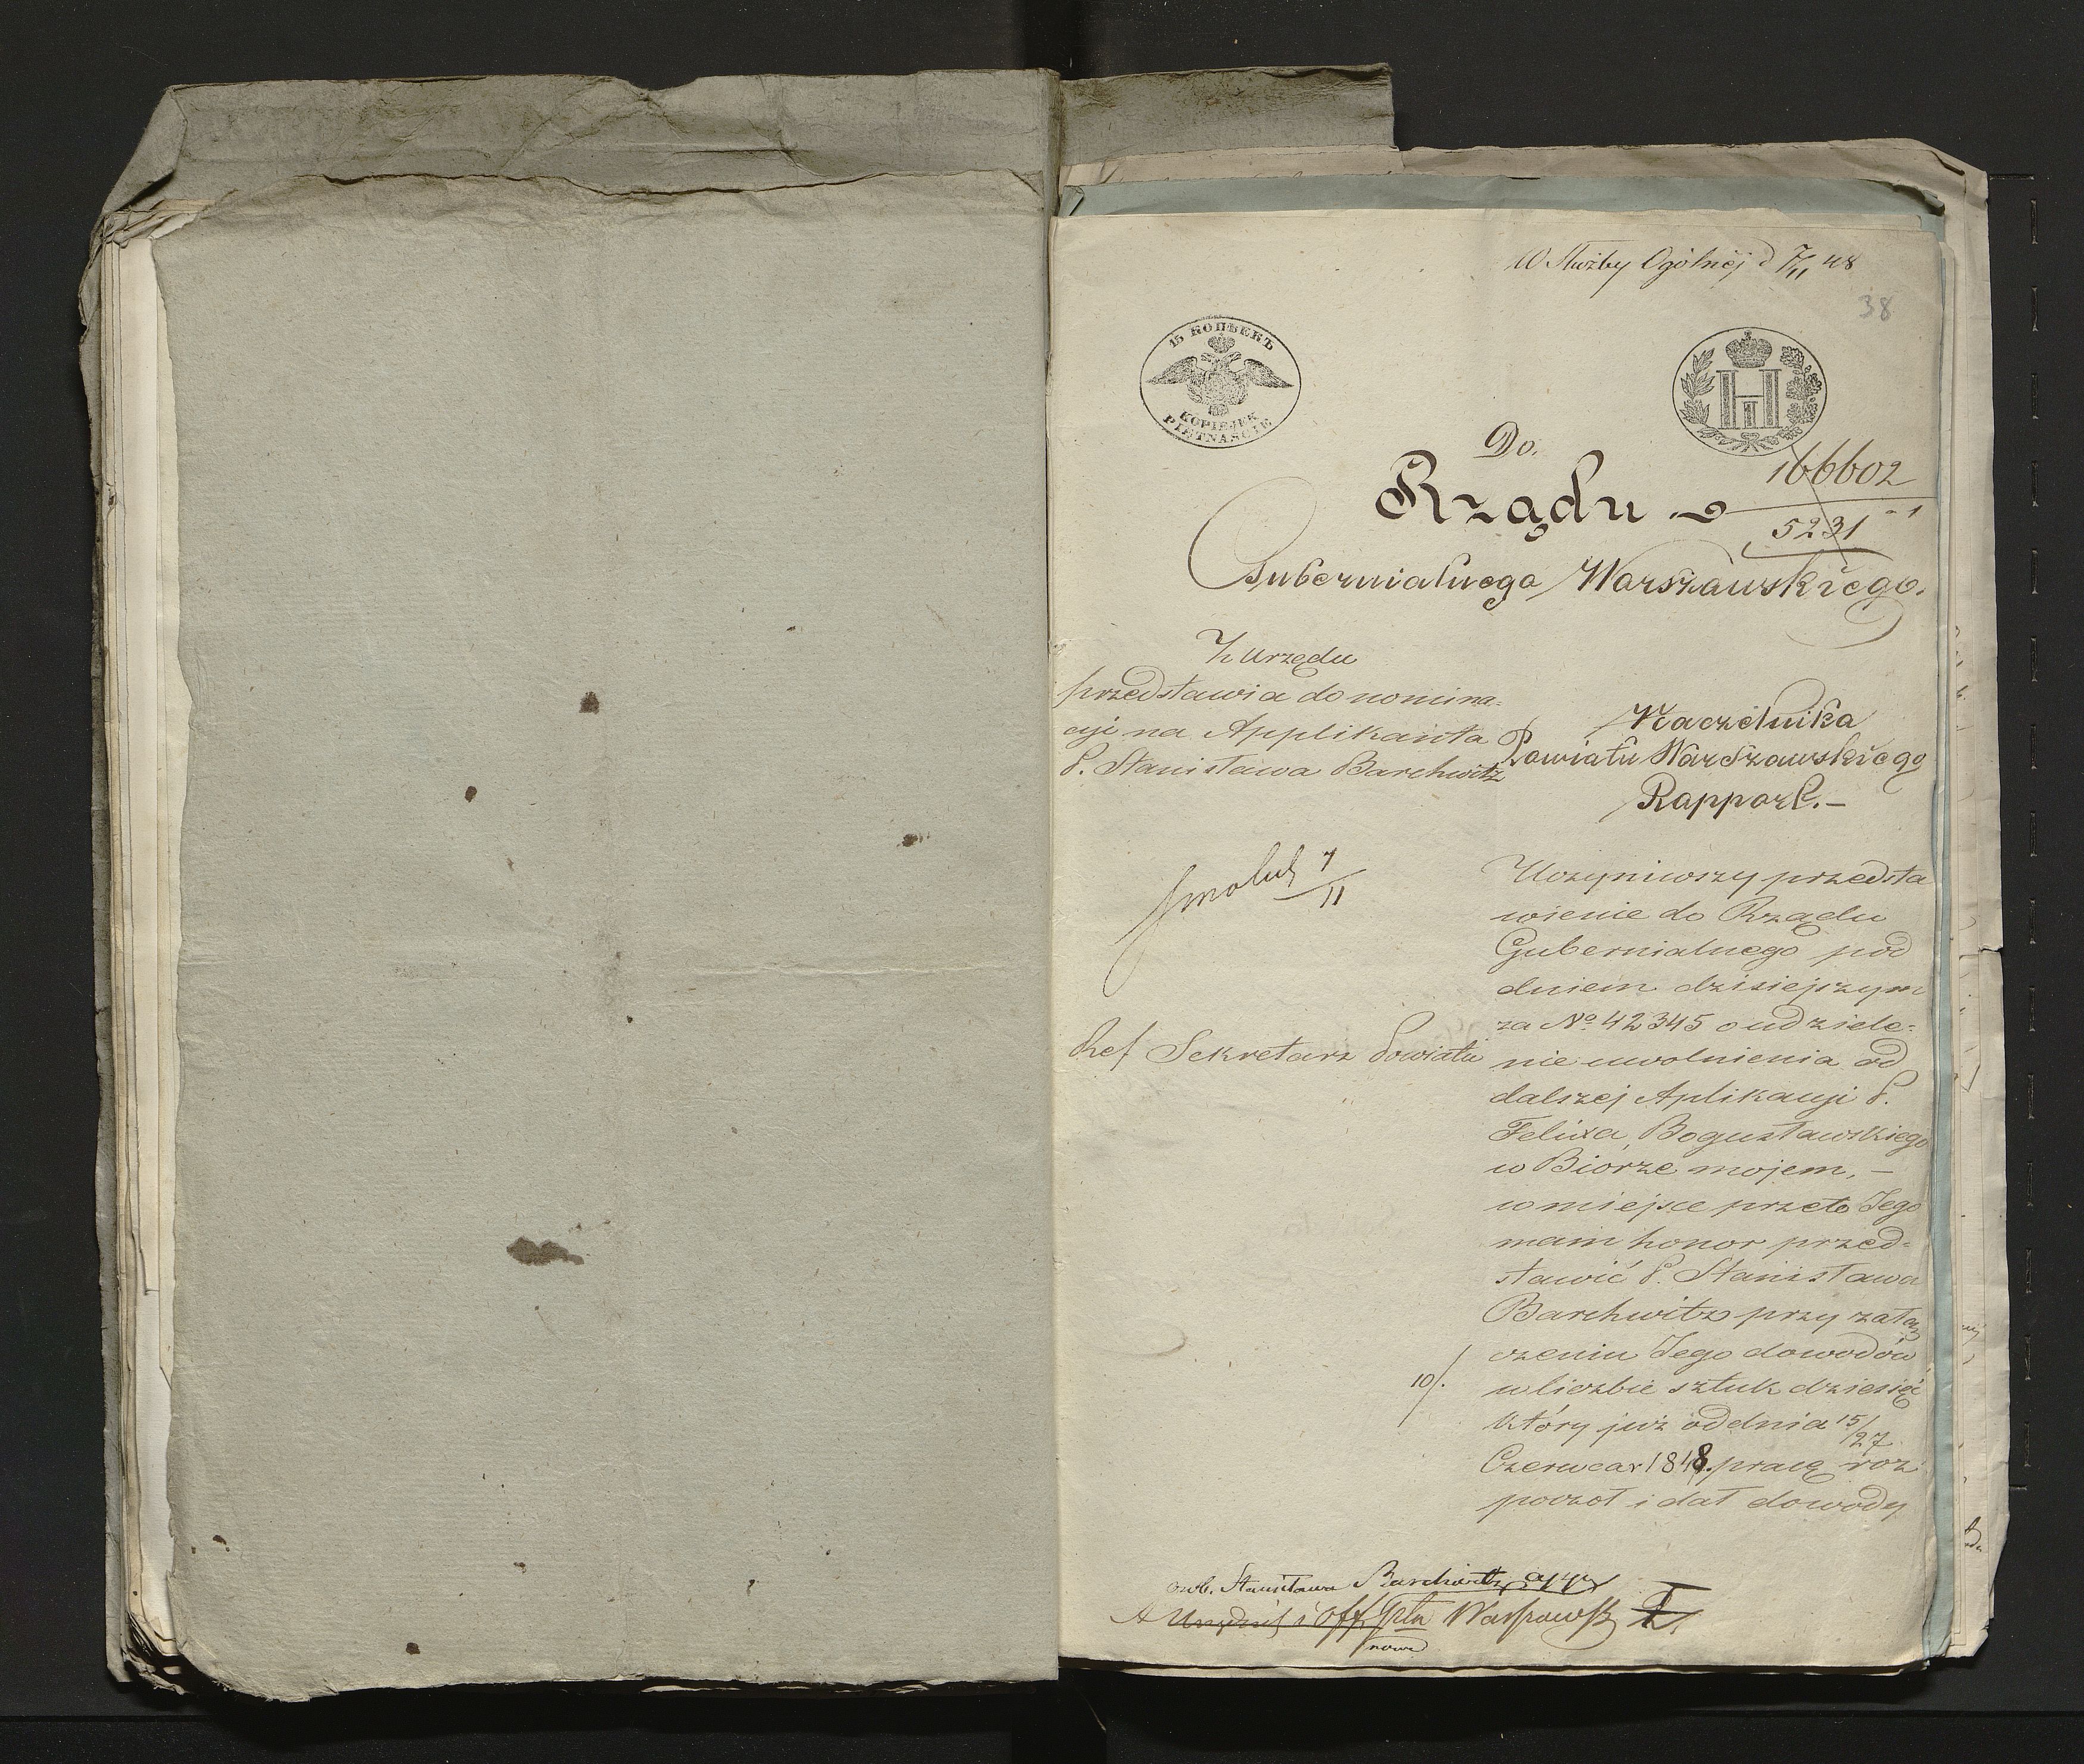 W Służby Ogólnej d 7/11 48
38
15 КОПѢЕКЪ
KOPIEJEK
PIĘTNAŚCIE
Н
I
Do
Rządu
166602
5231
Gubernialnego Warszawskiego.
Z Urzędu
przedstawia do nomina-
cyi na Applikanta
P. Stanisława Barchwitz
Naczelnika
Powiatu Warszawskiego
Rapport.—
7/11
Uczyniwszy przedsta
wienie do Rządu
Gubernialnego pod
dniem dzisiejszym
za No 42345 o udziele-
nie uwolnienia od
dalszej Aplikacyi P.
Felixa Bogusławskiego
w Biórze mojem, —
w miejsce przeto Jego
mam honor przed-
stawić P. Stanisława
Barchwitz przy załą
czeniu Jego dowodów
w liczbie sztuk dziesięć
który już od dnia 15/27
Czerwca r 1848. pracę roz
począł i dał dowody
10/.
Ref Sekretarz Powiatu
osob. Stanisława Barchwitz
A Urzędnicy i Off Głn Warszawsk
nowe